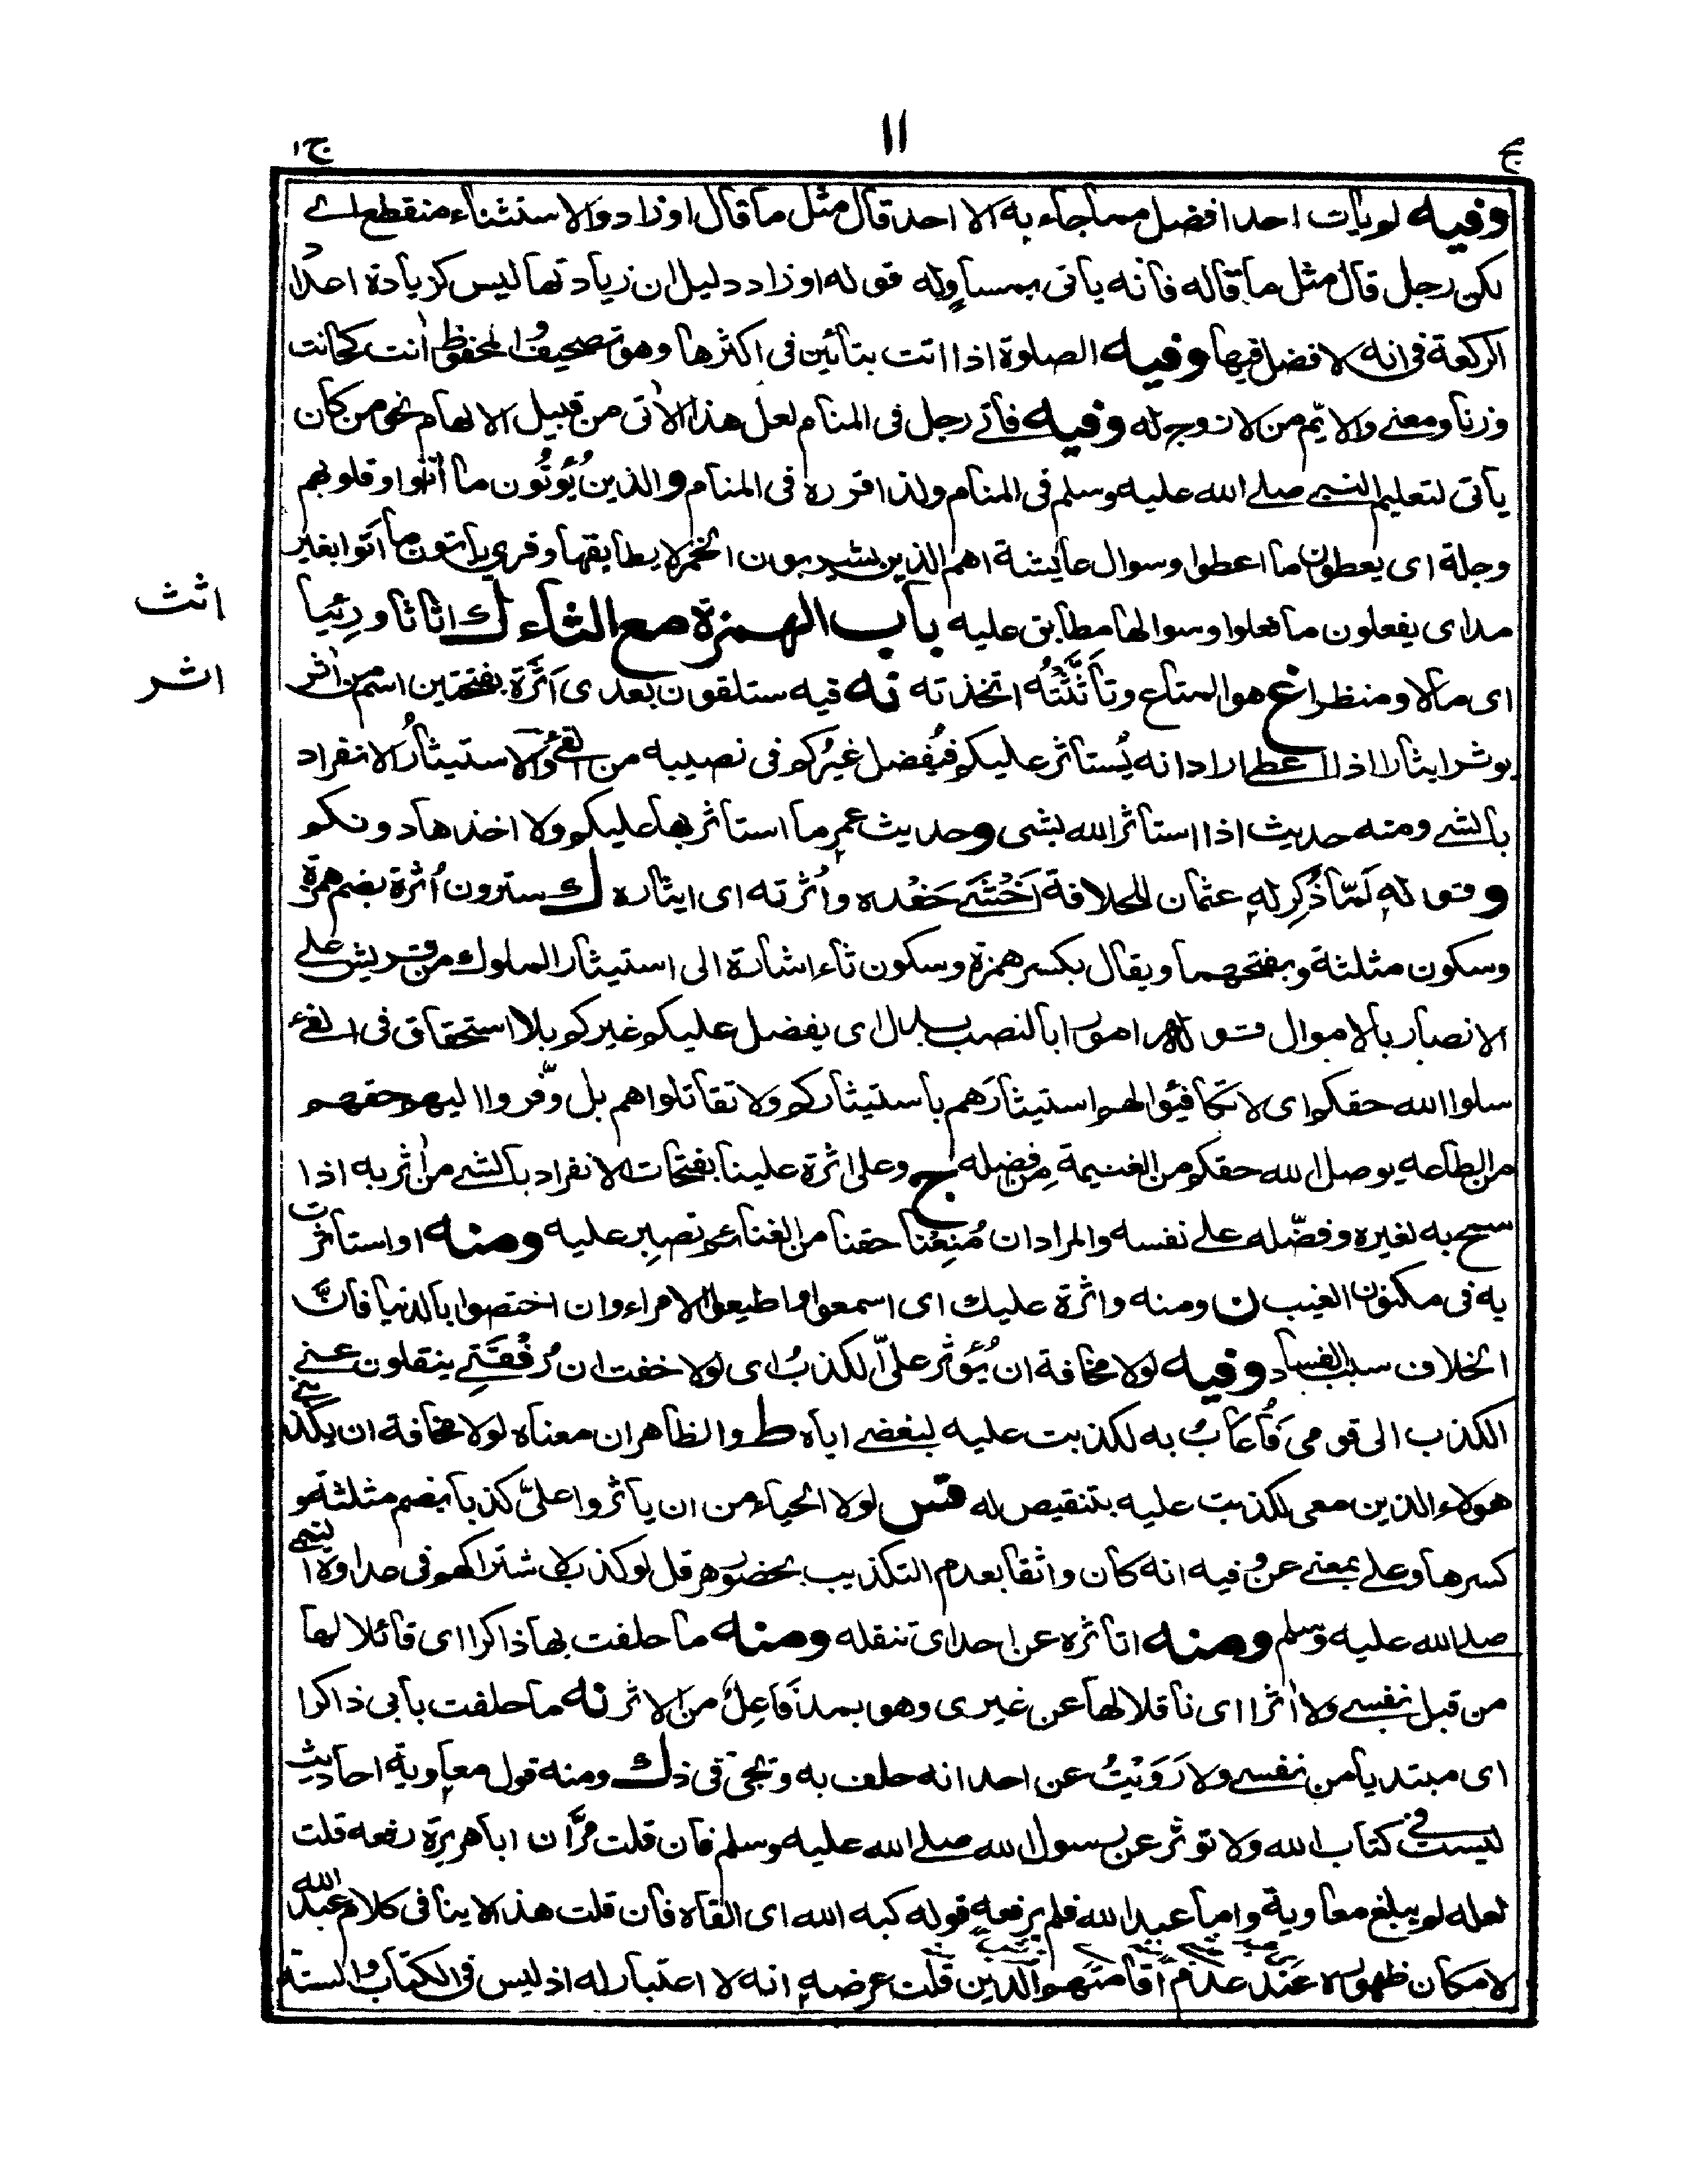 ج
١١
ج١
وفيه لو يأت احد افضل مما جاء به الا احد قال مثل ما قال او زاد والاستثناء منقطع اے
لكن رجل قال مثل ما قاله فأنه يأتى بمساوله قوله او زاد دليل ان زيادتها ليس كزيادة اعداد
الركعة فى انه لا فضل فيها وفيه الصلوة اذا اتت بتائين فى اكثرها وهو تصحيف والمحفوظ آنت كحانت
وزنا ومعنے والايّم من لا زوج له وفيه فأتے رجل فى المنام لعل هذا الآتى من قبيل الالهام نحو من كان
يأتى لتعليم النبے صلے الله عليه وسلم فى المنام ولذا قرره فى المنام والذين يُؤتُون ما أتوا وقلوبهم
وجلة اى يعطون ما اعطوا وسوال عايشة اهم الذين يشربون الخمر لا يطابقها وقرئ يأتون ما اتوا بغير
مد اى يفعلون ما فعلوا وسوالها مطابق عليه باب الهمزة مع الثاء ك اثاثا ورئيا
اثث
اى مالا ومنظرا غ هو المتاع وتأثّثتُه اتخذته نه فيه ستلقون بعدى اَثَرَة بفتحتين اسم من آثر
اثر
يوثر ايثارا اذا اعطے اراد انه يُستأثر عليكم فيُفضل غيركم فى نصيبه من الفئ والاستيثارُ الانفراد
بالشے ومنه حديث اذا استأثر الله بشى وحديث عمر ما استأثر بها عليكم ولا اخذها دونكم
وقوله لَمّا ذُكِر له عثمان للخلافة اَخْشَے حَفْده واُثرته اى ايثاره ك سترون اُثرة بضم همزة
وسكون مثلثة وبفتحهما ويقال بكسر همزة وسكون ثاء اشارة الى استيثار الملوك من قريش علے
الانصار بالاموال قوله امورا بالنصب بدل اى يفضل عليكم غيركم بلا استحقاق فى الفئ
سلوا الله حقكم اى لا تكافئوا لهم استيثارَهم باستيثاركم ولا تقاتلوهم بل وفّروا اليهم حقهم
من الطاعه يوصل الله حقكم من الغنيمة مِن فضله ج وعلى اثرة علينا بفتحات الانفراد بالشے من آثر به اذا
سمح به لغيره وفضّله علے نفسه والمراد ان مُنِعْنا حقنا من الغنائم نصبر عليه ومنه او استأثرت
به فى مكنون الغيب ن ومنه واثرة عليك اى اسمعوا واطيعوا الامراء وان اختصوا بالدنيا فانّ
الخلاف سبب الفساد وفيه لولا مخافة ان يُؤثر علىّ الكذبُ اى لولا خفت ان رُفْقَتِے ينقلون عنے
الكذب الى قومى فأُعابُ به لكذبت عليه لبغضے اياه ط والظاهر ان معناه لولا مخافة ان يكذبنے
هولاء الذين معى لكذبت عليه بتنقيص له قس لولا الحياء من ان يأثروا علىّ كذبا بضم مثلثة و
كسرها وعلے بمعنے عن وفيه انه كان واثقا بعدم التكذيب بحضور هرقل لو كذب لاشتراكهم فى عداوة النبى
صلے الله عليه وسلم ومنه اتأثره عن احد اى تنقله ومنه ما حلفت بها ذاكرا اى قائلا لها
من قبل نفسے ولا آثرا اى ناقلا لها عن غيرى وهو بمد فَاعِلٌ من الاثر نه ما حلفت بأبى ذاكرا
اى مبتديا من نفسے ولا رَوَيْتُ عن احد انه حلف به وتجئ فى ذ ك ومنه قول معاوية احاديث
ليست فى كتاب الله ولا توثر عن رسول الله صلے الله عليه وسلم فان قلت مرّ ان اباهريرة رفعه قلت
لعله لم يبلغ معاوية واما عبد الله فلم يرفعه قوله كبه الله اى القاه فان قلت هذا لا ينافى كلام عبد الله
لامكان ظهوره عند عدم اقامتهم الدين قلت غرضه انه لا اعتبار له اذ ليس فى الكتاب والسنة